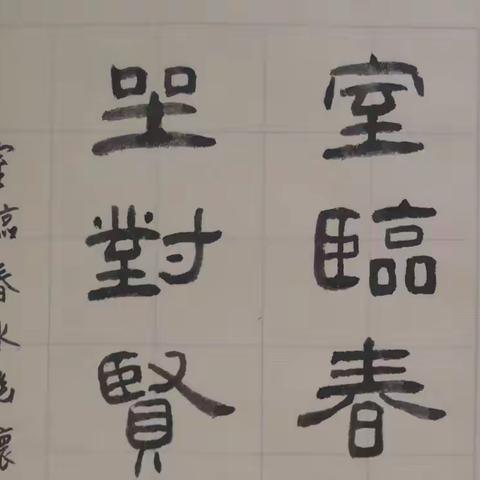 室臨春
坐對賢
室臨春水幽懷